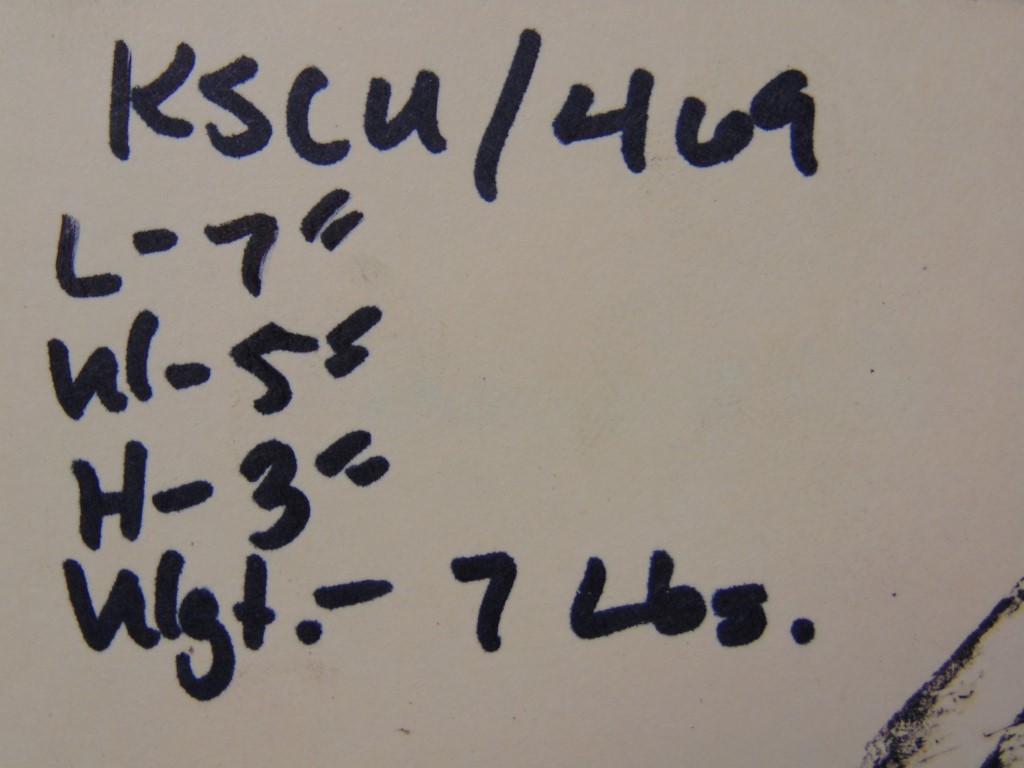 KSCU/469
L-7"
W-5"
H-3"
Wgt.- 7 Lbs.